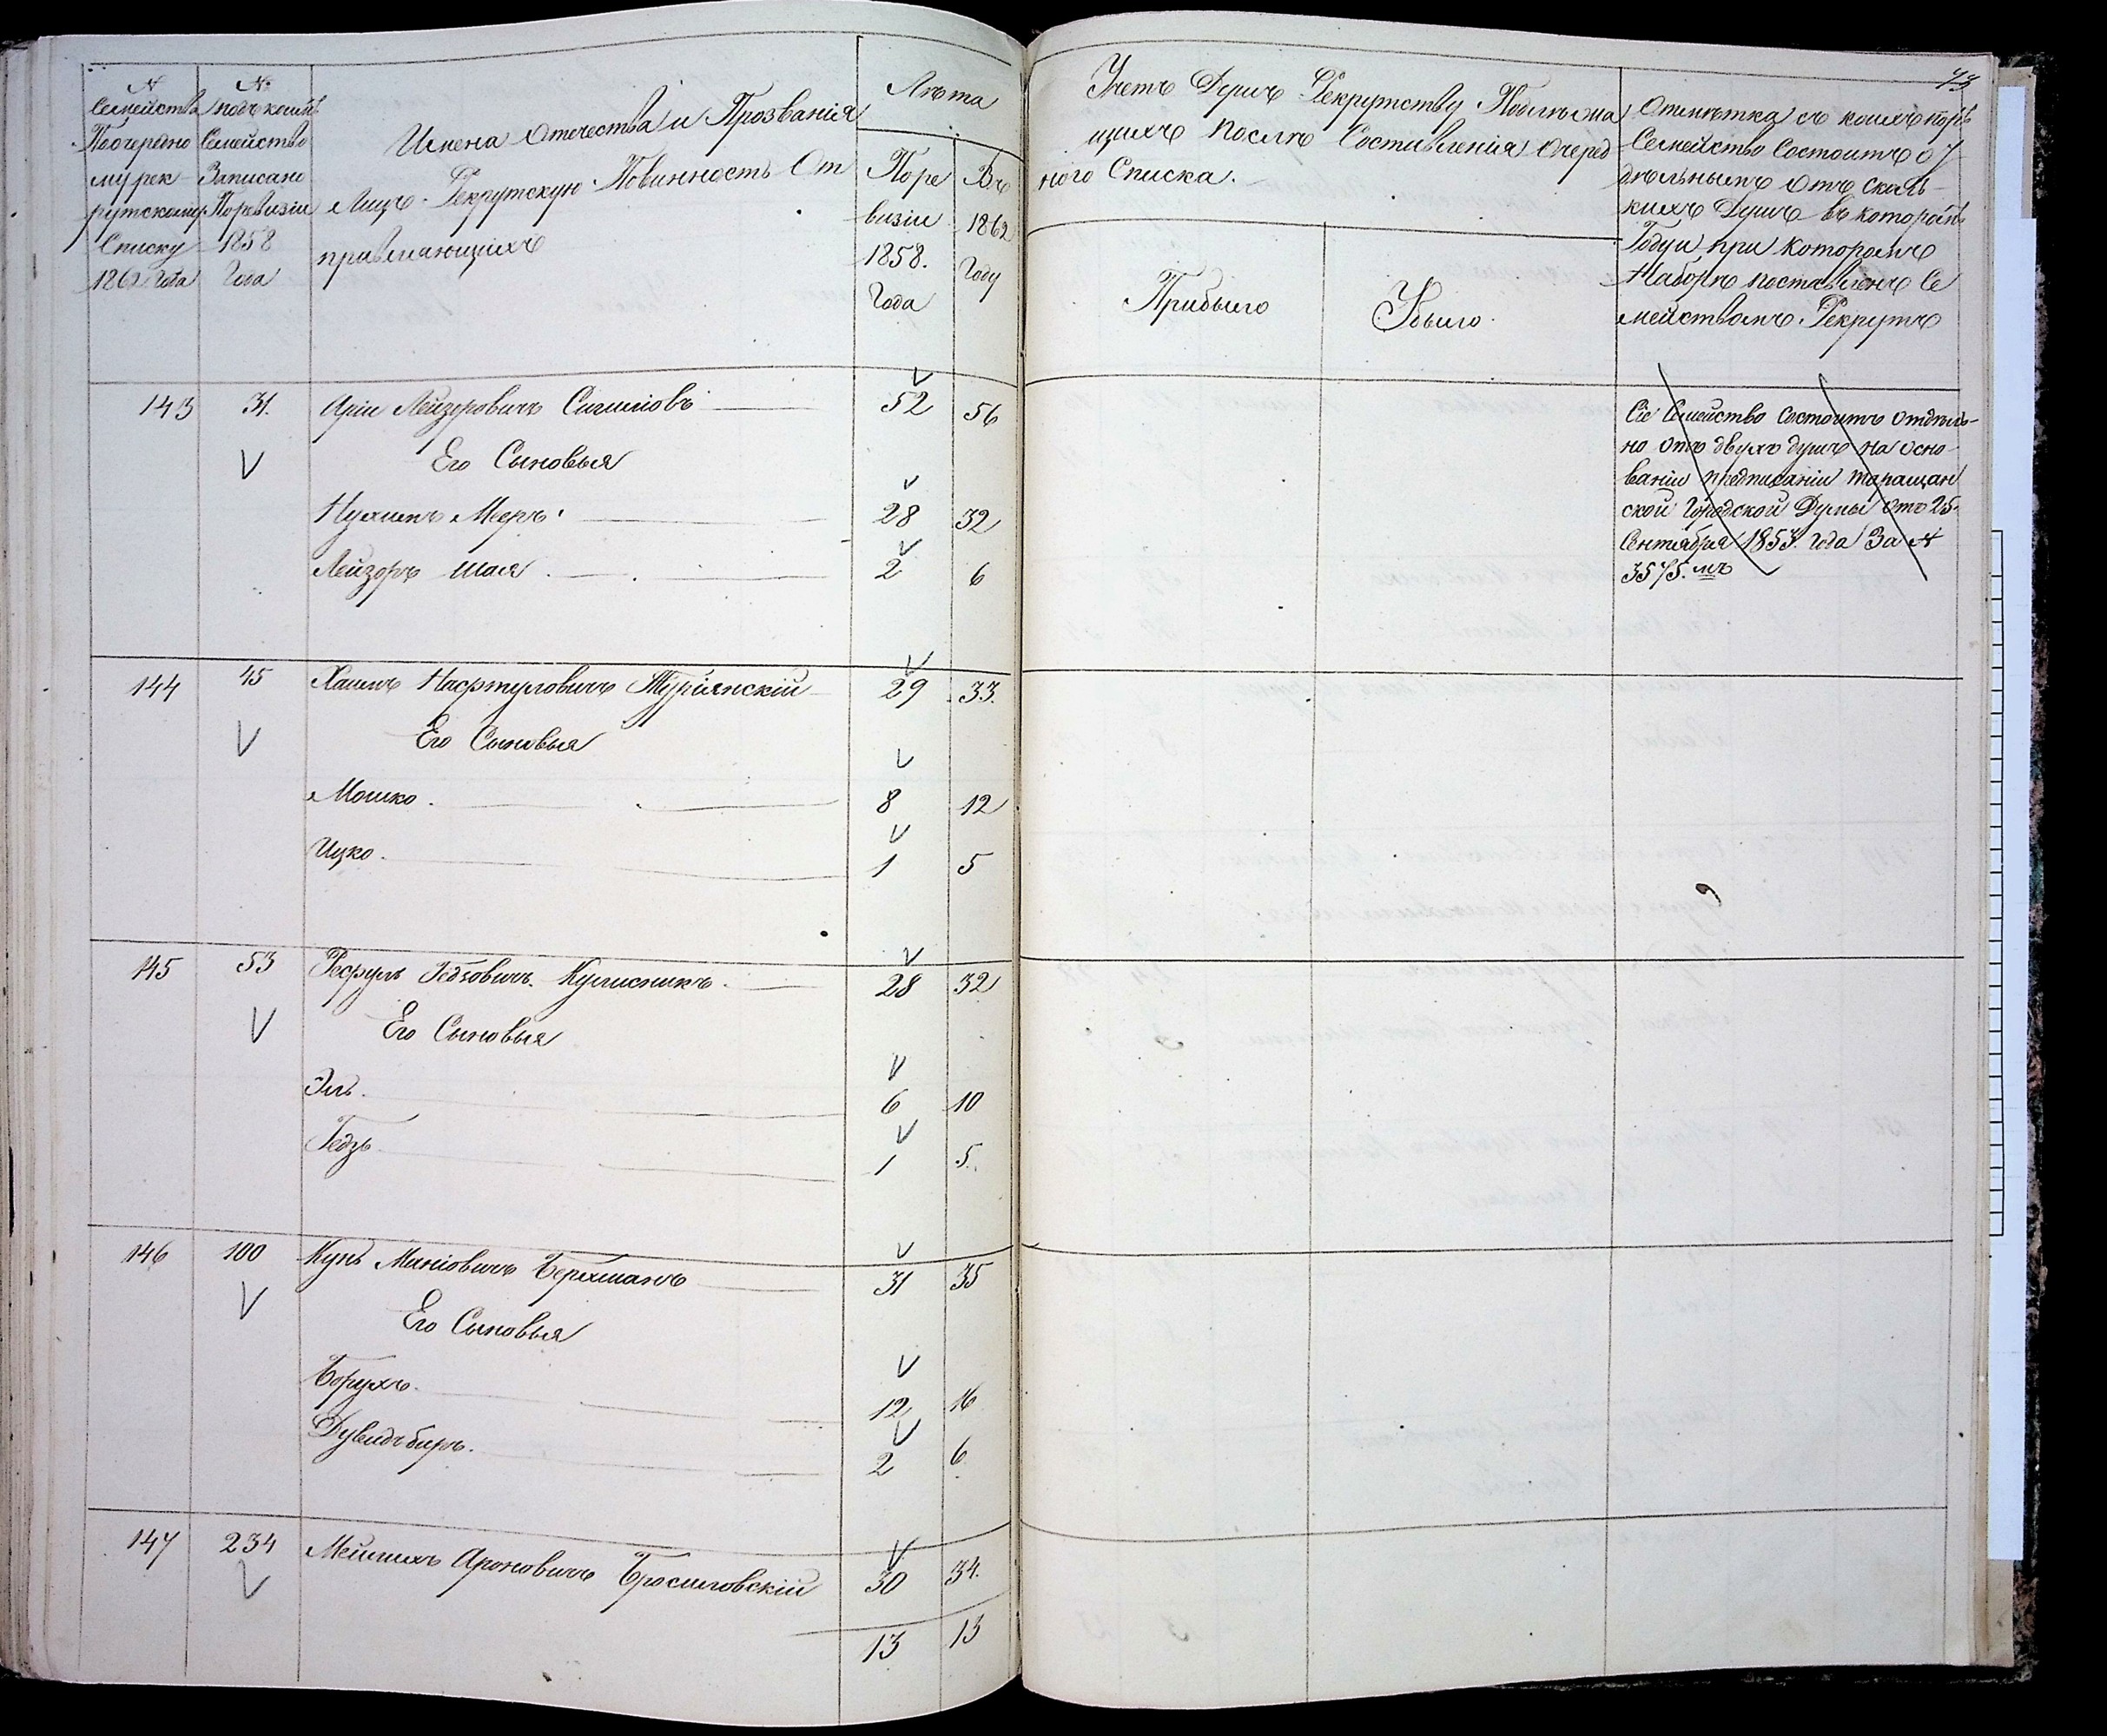 № Семейства Поочередно му рек рутскому Списку 1862 Года
№ подъ коимъ Семейство Записано По ревизіи 1858 Года
Имена Отечества и Прозванія
Лицъ Рекрутскую Повинность От
правляющихъ
Лѣта
По ре визіи 1858. Года
Въ 1862 Году
143 31. Арія Лейзоровичъ Сигаловъ 52 56
Его Сыновья
Нухимъ Мееръ 28 32
Лейзоръ Шая 2 6
144 45 Хаимъ Насртуловичъ Турянскій 29 33.
Его Сыновья
Мошко. 8 12
Ицко. 1 5
145 53 Гедзовичъ. Кулисникъ. 28 32
Его Сыновья
Эль. 6 10
Гедзь 1 5.
146 100 Кунъ Маніовичъ Берхманъ 31 35
Его Сыновья
Борухъ. 12 16
Дувидъ беръ. 2 6
147 234 Мейлихъ Ароновичъ Бросиловскій 30 34.
13 13
73
Учетъ Душъ Рекрутству Подлежа
щихъ послѣ Составленія Очеред
ного Списка.
Прибыло
Убыло.
Отмѣтка съ коихъ поръ
Семейство Состоитъ от
дѣльнымъ отъ сколь
кихъ Душъ въ которомъ
Году и при которомъ
Наборѣ поставленъ Се
мействомъ Рекрутъ
Сіе Семейство Состоитъ отдѣль-
но отъ двухъ душъ на осно-
ваніи предписанія Таращан
ской Городской Думы отъ 25.
Сентября 1853. года За №
3575. мъ